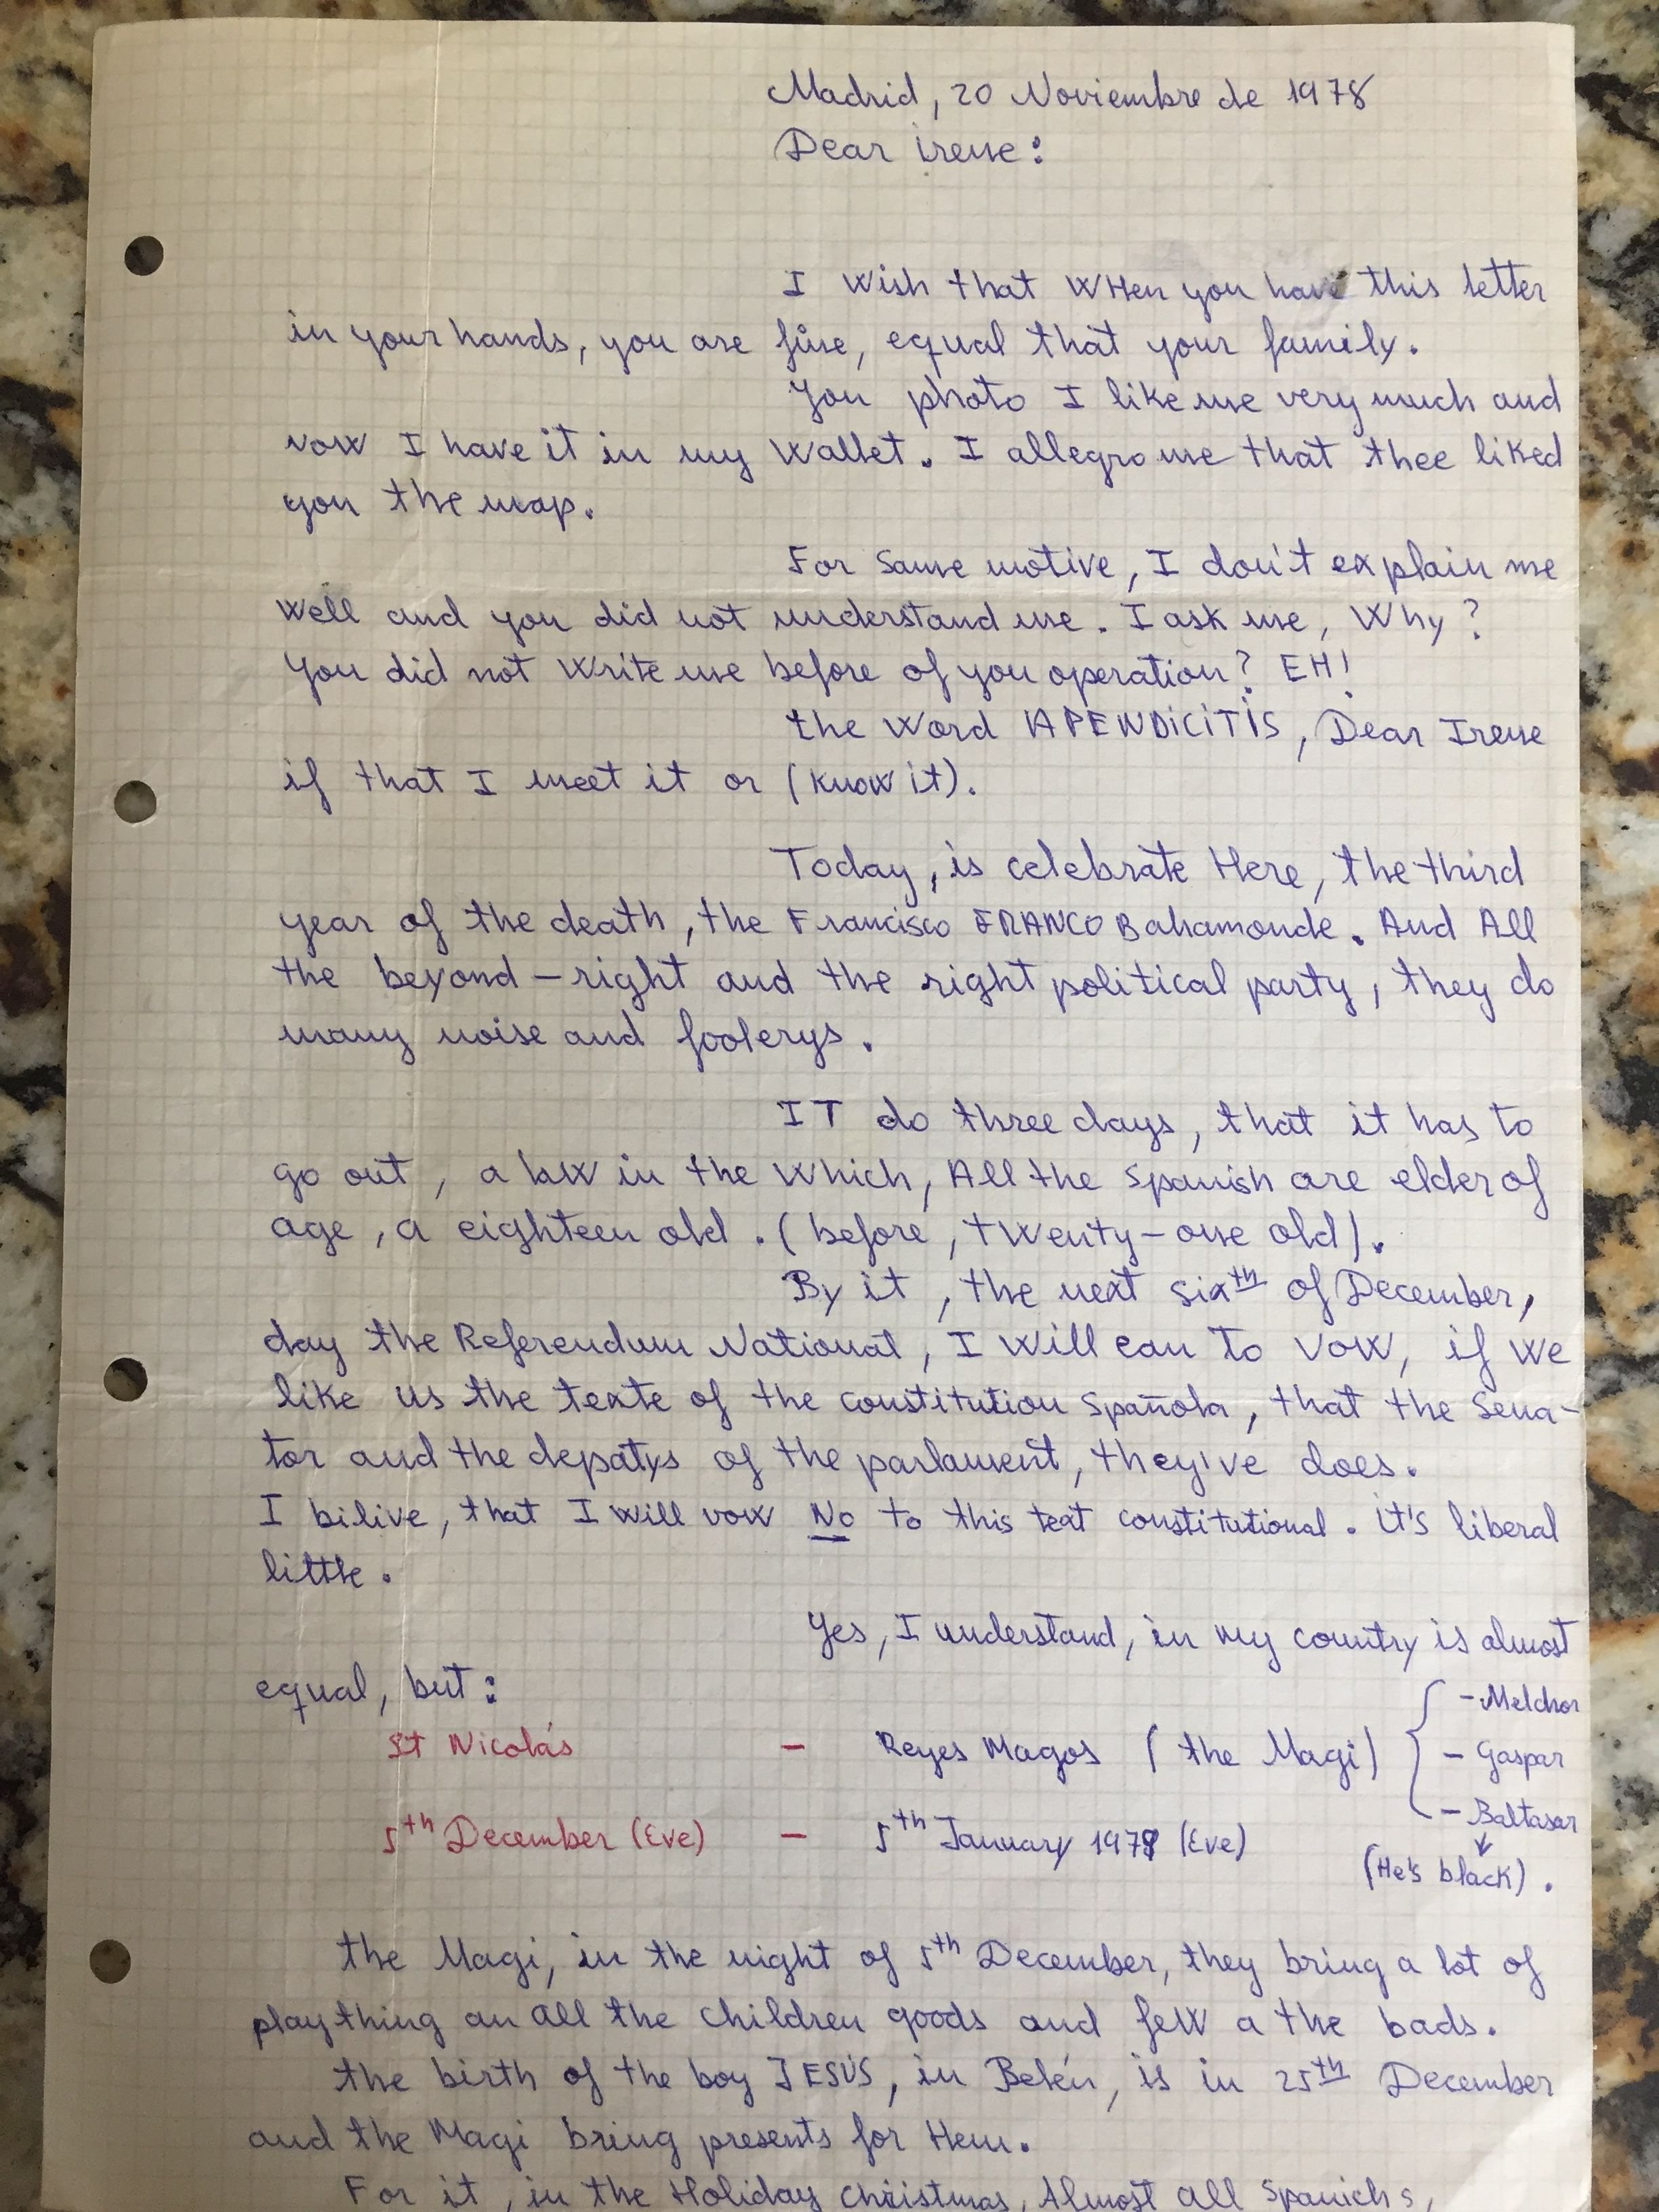 Madrid, 20 Noviembre de 1978
Dear irene:
I wish that wHen you have this letter
in your hands, you are fine, equal that your family.
You photo I like me very much and
now I have it in my wallet. I allegro me that thee liked
you the map.
For same motive, I don't explain me
well and you did not understand me. I ask me, Why?
You did not write me before of you operation? EH!
the word APENDiCiTiS, Dear Irene
if that I meet it or (know it).
Today, is celebrate Here, the third
year of the death, the Francisco FRANCO Bahamonde. And All
the beyond-right and the right political party, they do
many noise and foolerys.
IT do three days, that it has to
go out, a law in the which, All the spanish are elder of
age, a eighteen old. (before, twenty-one old).
By it, the next sixth of December,
day the Referendum National, I will can to vow, if we
like us the texte of the constitution Spañola, that the Sena-
tor and the depatys of the parlament, they've does.
I bilive, that I will vow No to this text constitutional. it's liberal
little.
Yes, I understand, in my country is almost
equal, but:
St Nicolás - Reyes Magos (the Magi) { - Melchor
- Gaspar
- Baltasar
(He's black).
5th December (Eve) - 5th January 1979 (Eve)
the Magi, in the night of 5th December, they bring a lot of
plaything an all the children goods and few a the bads.
the birth of the boy JESÚS, in Belén, is in 25th December
and the Magi bring presents for Hem.
For it, in the Holiday christmas, Almost all Spanichs,